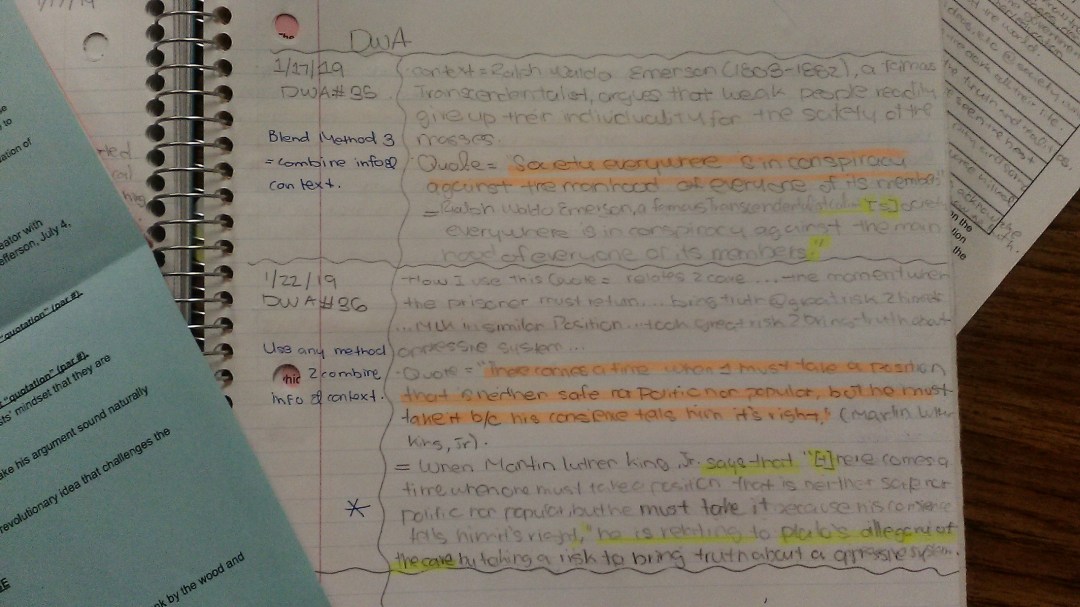 DWA
1/17/19
DWA#35
Blend Method 3
=combine info&
context.
context=Ralph Waldo Emerson (1803-1882), a famas
Transcendentalist, argues that weak people readily
give up their individuality for the safety of the
masses.
Quote= "Society everywhere is in conspiracy
against the manhood of everyone of its members"
=Ralph Waldo Emerson, a famous Transcendentalist "[s]ociety
everywhere is in conspiracy against the man
hood of everyone of its members."
1/22/19
DWA#36
Use any method
2 combine
info & context.
-How I use this Quote= relates 2 cave ... the moment when
the prisoner must return.... bring truth @ great risk 2 himself
...MLK in similar position...took great risk 2 bring truth about
oppressie system...
-Quote="There comes a time when 1 must take a position
that is neither safe nor politic nor popular, but he must
take it b/c his conscience tells him it's right," (Martin Luther
King, Jr).
= When Martin luther king, Jr. says that "[t]here comes a
time when one must take a position that is neither safe nor
politic nor popular, but he must take it because his conscience
tells him it's right," he is relating to plato's allegory of
the cave by taking a risk to bring truth about a oppressive system.
*
eator with
efferson, July 4,
"quotation" (par #).
"quotation" (par #).
sts' mindset that they are
ake his argument sound naturally
revolutionary idea that challenges the
nk by the wood and